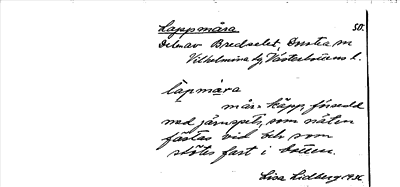 Lappmåra SD.
Delnav Bredselet, Dnstra m
Vilhelmina lg, Västerbotens l.
läpmåra
mår = käpp, försedd
med järnspets, som näten
fästas vid och som
stötes fast i botten.
Lisa Lidberg 1936.